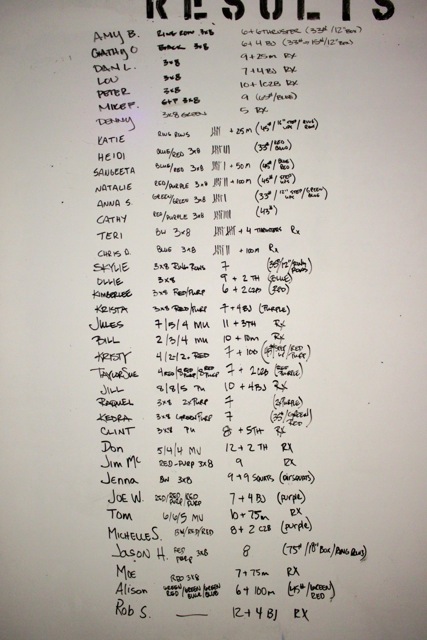 RESULTS
AMY B. RING ROW 3x8 6+6 THRUSTER (33#/12" BOX)
CATHY O BLACK 3x8 6+4 BJ (33# 15#/12" BOX)
DAN L. 3x8 9+25m RX
LOU 3x8 7+4 BJ RX
PETER 3x8 10+10 C2B RX
MIKE F. GST 3x8 9 (65#/BLUE)
DENNY 3x8 GREEN 5 RX
KATIE RING ROWS + 25m (45#/12" STEP UPS)
HEIDI BLUE/RED 3x8 (33#/RED BLUE)
SANGEETA BLUE/RED 3x8 + 50m (65#/BLUE RED)
NATALIE RED/PURPLE 3x8 + 100m (45#/STEP UPS)
ANNA S. GREEN/RED 3x8 (33#/12" STEP UPS/GREEN BLUE)
CATHY RED/PURPLE 3x8 (43#)
TERI BW 3x8 + 4 THRUSTERS Rx
CHRIS D. BLUE 3x8 + 100m Rx
SKYLIE 3x8 RING ROWS 7 (35#/12"/RING ROWS)
OLLIE 3x8 9+2 TH (BLUE)
KIMBERLEE 3x8 RED/PURP 6+2 C2B (RED)
KRISTA 3x8 RED/PURP 7+4BJ (PURPLE)
JULES 7/5/4 MU 11+3TH Rx
BILL 2/3/4 MU 10+10m Rx
KRISTY 4/2/2 RED 7+100
TAYLOR SUE 7+2 C2B (RED/PURPLE)
JILL 8/8/5 PU 10+4BJ Rx
RAQUEL 3x8 2xPURP 7 (2xPURPLE)
KEDRA 3x8 GREEN/PURP 7 (35#/GREEN RED)
CLINT 3x8 PU 8+5TH Rx
DON 5/4/4 MU 12+2 TH RX
Jim Mc RED-PURP 3x8 9 RX
Jenna BW 3x8 9+9 SQUATS (airsquats)
JOE W. RED/RED PURP/RED PURP 7+4 BJ (purple)
TOM 6/6/5 MU 10+75m RX
MICHELLE S. BW/RED/RED 8+2 C2B (purple)
JASON H. RED PURP 3x8 8 (75#/18" BOX/RING ROWS)
MOE RED 3x8 7+75m RX
Alison GREEN RED/GREEN BLUE/GREEN BLUE 6+100m (45#/GREEN RED)
Rob S. — 12+4 BJ RX